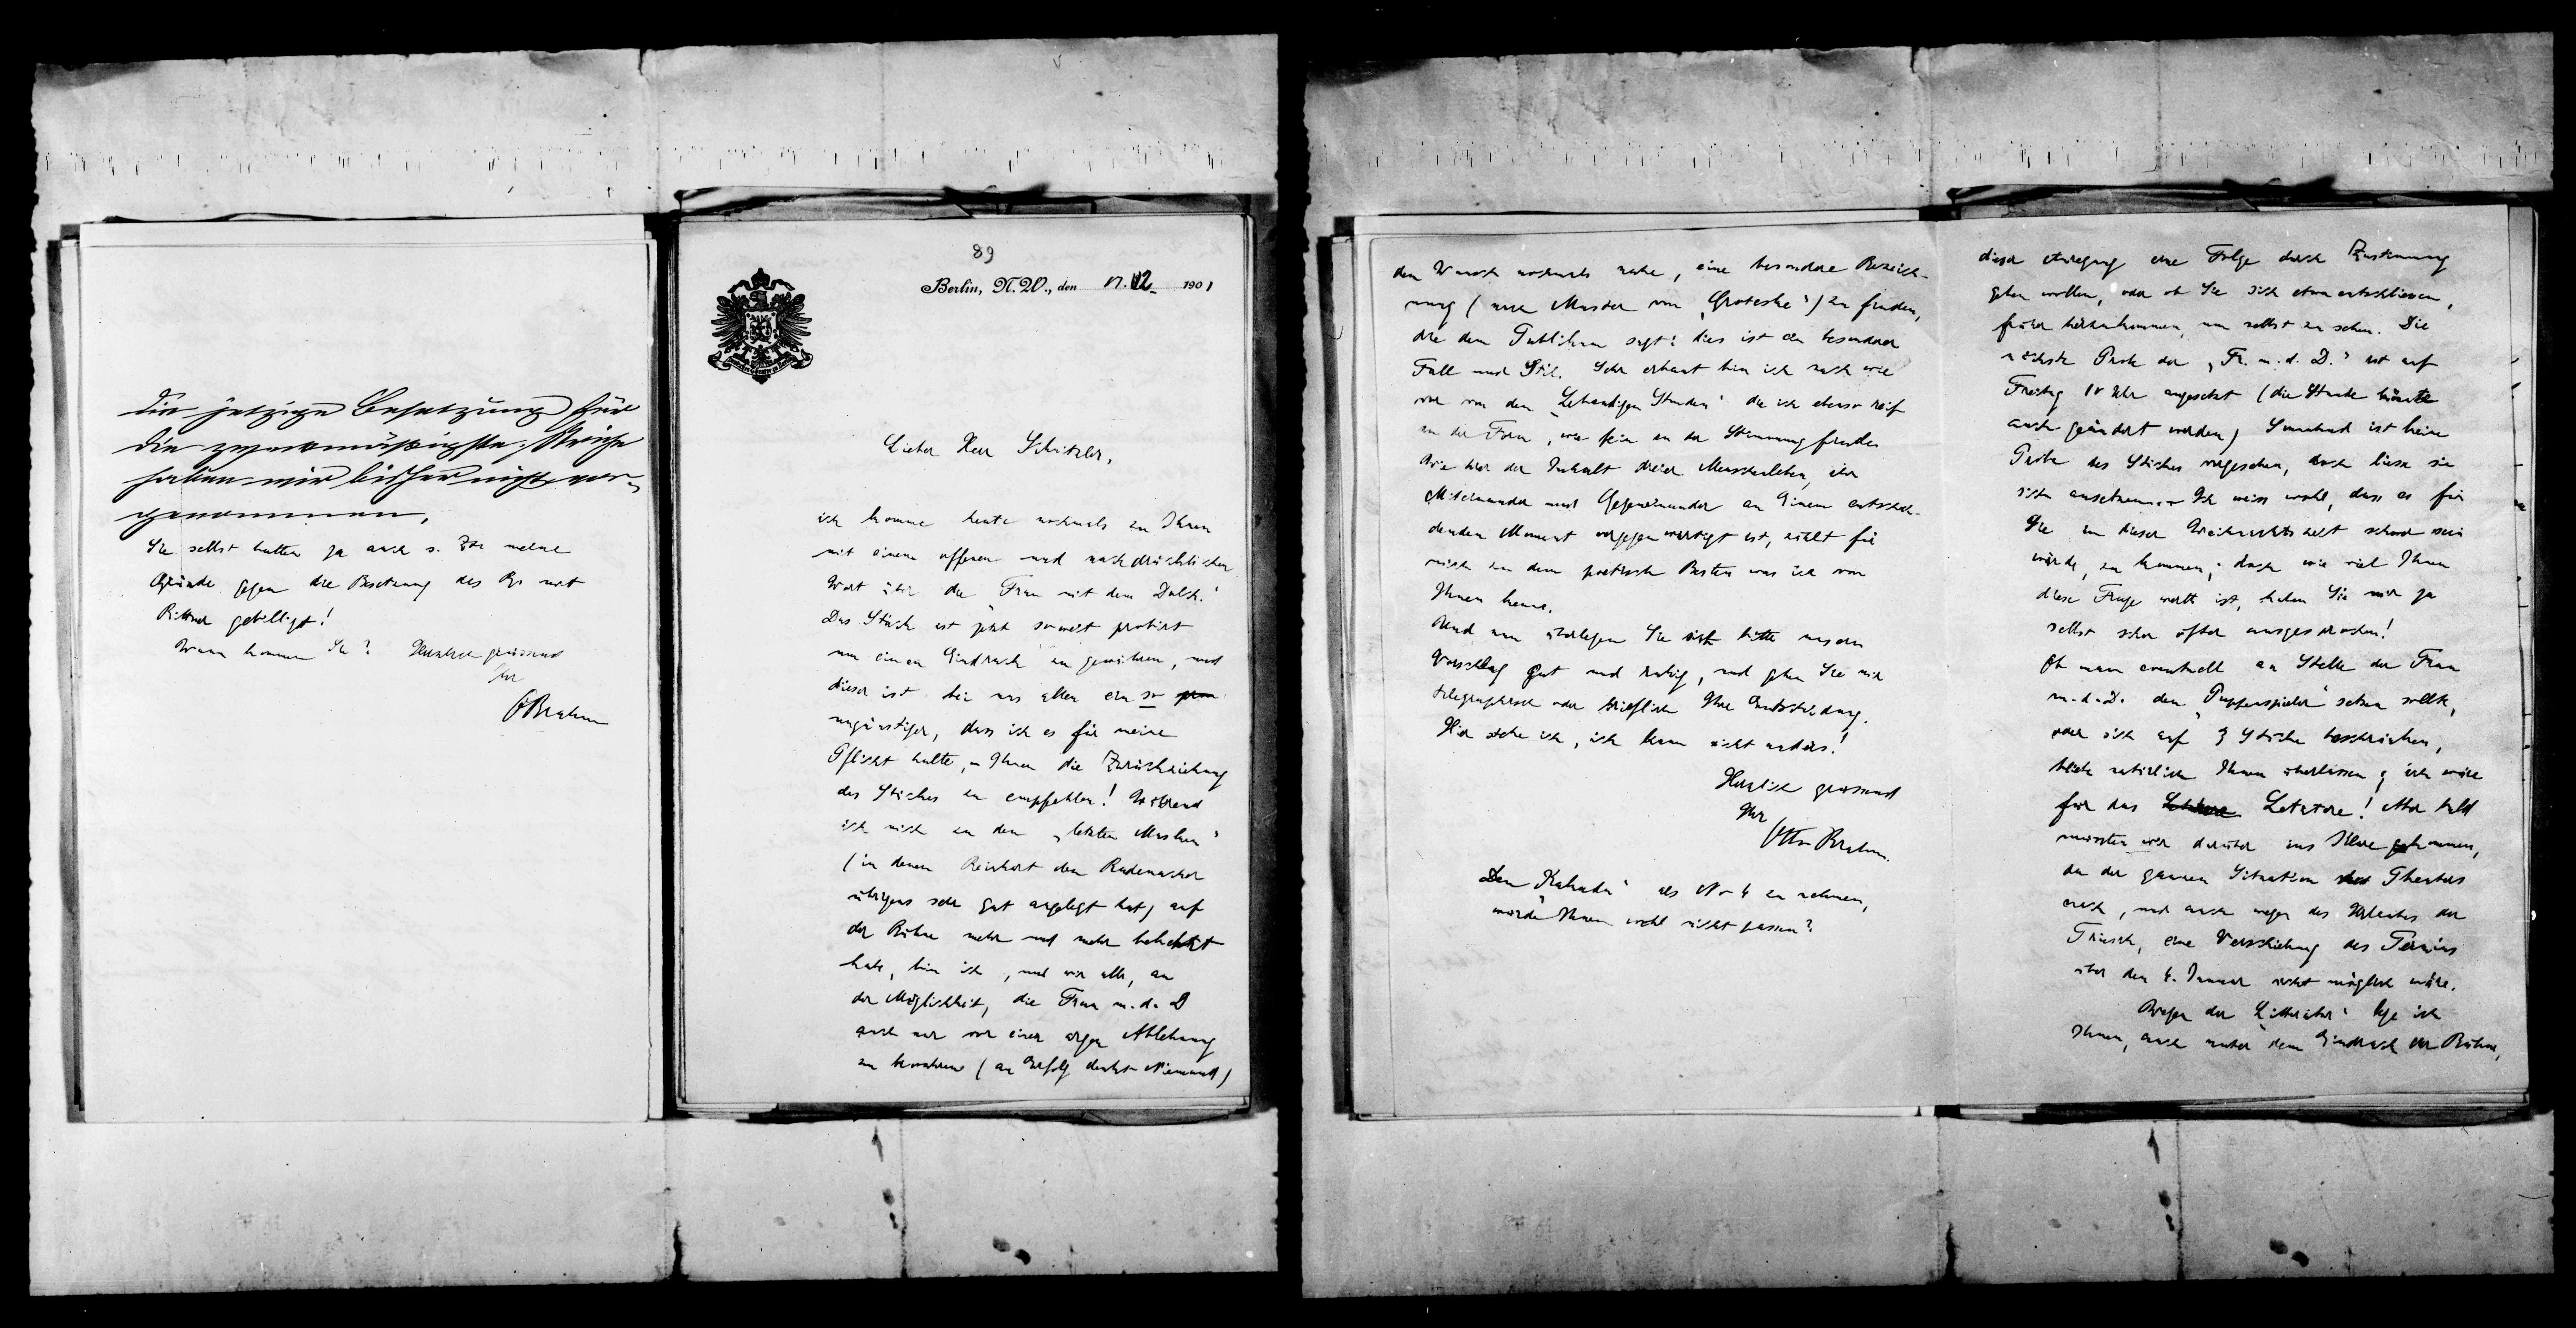 die jetzige Besetzung für
die zweckmäßigste. Striche
haben wir bisher nicht vor-
genommen.
Sie selbst hatten ja auch s. Zt. meine
Gründe gegen die Besetzung des mit
Rittner gebilligt!
Wann kommen Sie? Herzlich grüssend
Ihr
OBrahm
89
Berlin, N.W., den 17. 12. 1901
Lieber Herr Schnitzler,
ich komme heute nochmals zu Ihnen
mit einem offenen und nachdrücklichen
Wort über die „Frau mit dem Dolch."
Das Stück ist jetzt soweit probirt
um einen Eindruck zu gewähren, und
dieser ist bei uns allen ein so
ungünstiger, dass ich es für meine
Pflicht halte, Ihnen die Zurückziehung
des Stückes zu empfehlen! Während
ich mich zu den „letzten Masken"
(in denen Reinhart den Rademacher
übrigens sehr gut angelegt hat) auf
der Bühne mehr und mehr bekehrt
habe, bin ich, und wir alle, an
der Möglichkeit, die Frau m. d. D
auch nur vor einer argen Ablehnung
zu bewahren (an Erfolg denkt Niemand)
den Wunsch nochmals nahe, eine besondere Bezeich-
nung (nach Muster von „Groteske") zu finden,
die dem Publikum sagt: dies ist ein besondrer
Fall und Stil. Sehr erbaut bin ich nach wie
vor von den „Lebendigen Stunden" die ich ebenso reif
in der Form, wie fein in der Stimmung finde.
Wie hier der Inhalt dreier Menschenleben, ihr
Miteinander und Gegeneinander an Einem entschei-
denden Moment vergegenwärtigt ist, zählt für
mich zu dem poetisch Besten was ich von
Ihnen kenne.
Und nun überlegen Sie sich bitte unsern
Vorschlag gut und ruhig, und geben Sie mir
telegraphisch oder brieflich Ihre Entscheidung.
Hier stehe ich, ich kann nicht anders!
Herzlich grüssend
Ihr
Otto Brahm.
Den „Kakadu" als No 4 zu nehmen,
würde Ihnen wohl nicht passen?
dieser Anregung eine Folge durch Zustimmung
geben wollen, oder ob Sie sich etwa entschliessen,
früher herzukommen, um selbst zu sehen. Die
nächste Probe der „Fr. m. d. D." ist auf
Freitag 10 Uhr angesetzt (die Stunde könnte
auch geändert werden) Sonnabend ist keine
Probe des Stückes vorgesehen, doch liesse sie
sich ansetzen. Ich weiss wohl, dass es für
Sie in dieser Weihnachtszeit schwer sein
würde, zu kommen; doch wie viel Ihnen
diese Frage werth ist, haben Sie mir ja
selbst schon öfter ausgesprochen!
Ob man eventuell an Stelle der Frau
m. d. D. den „Puppenspieler" setzen sollte,
oder sich auf 3 Stücke beschränken,
bliebe natürlich Ihnen überlassen; ich wäre
für das Letztere! Aber bald
müssten wir darüber ins Klare kommen,
da der ganzen Situation des Theaters
nach, und auch wegen des Urlaubes der
Triesch, eine Verschiebung des Termins
über den 4. Januar nicht möglich wäre.
Wegen der „Litteratur" lege ich
Ihnen, auch unter dem Eindruck der Bühne,